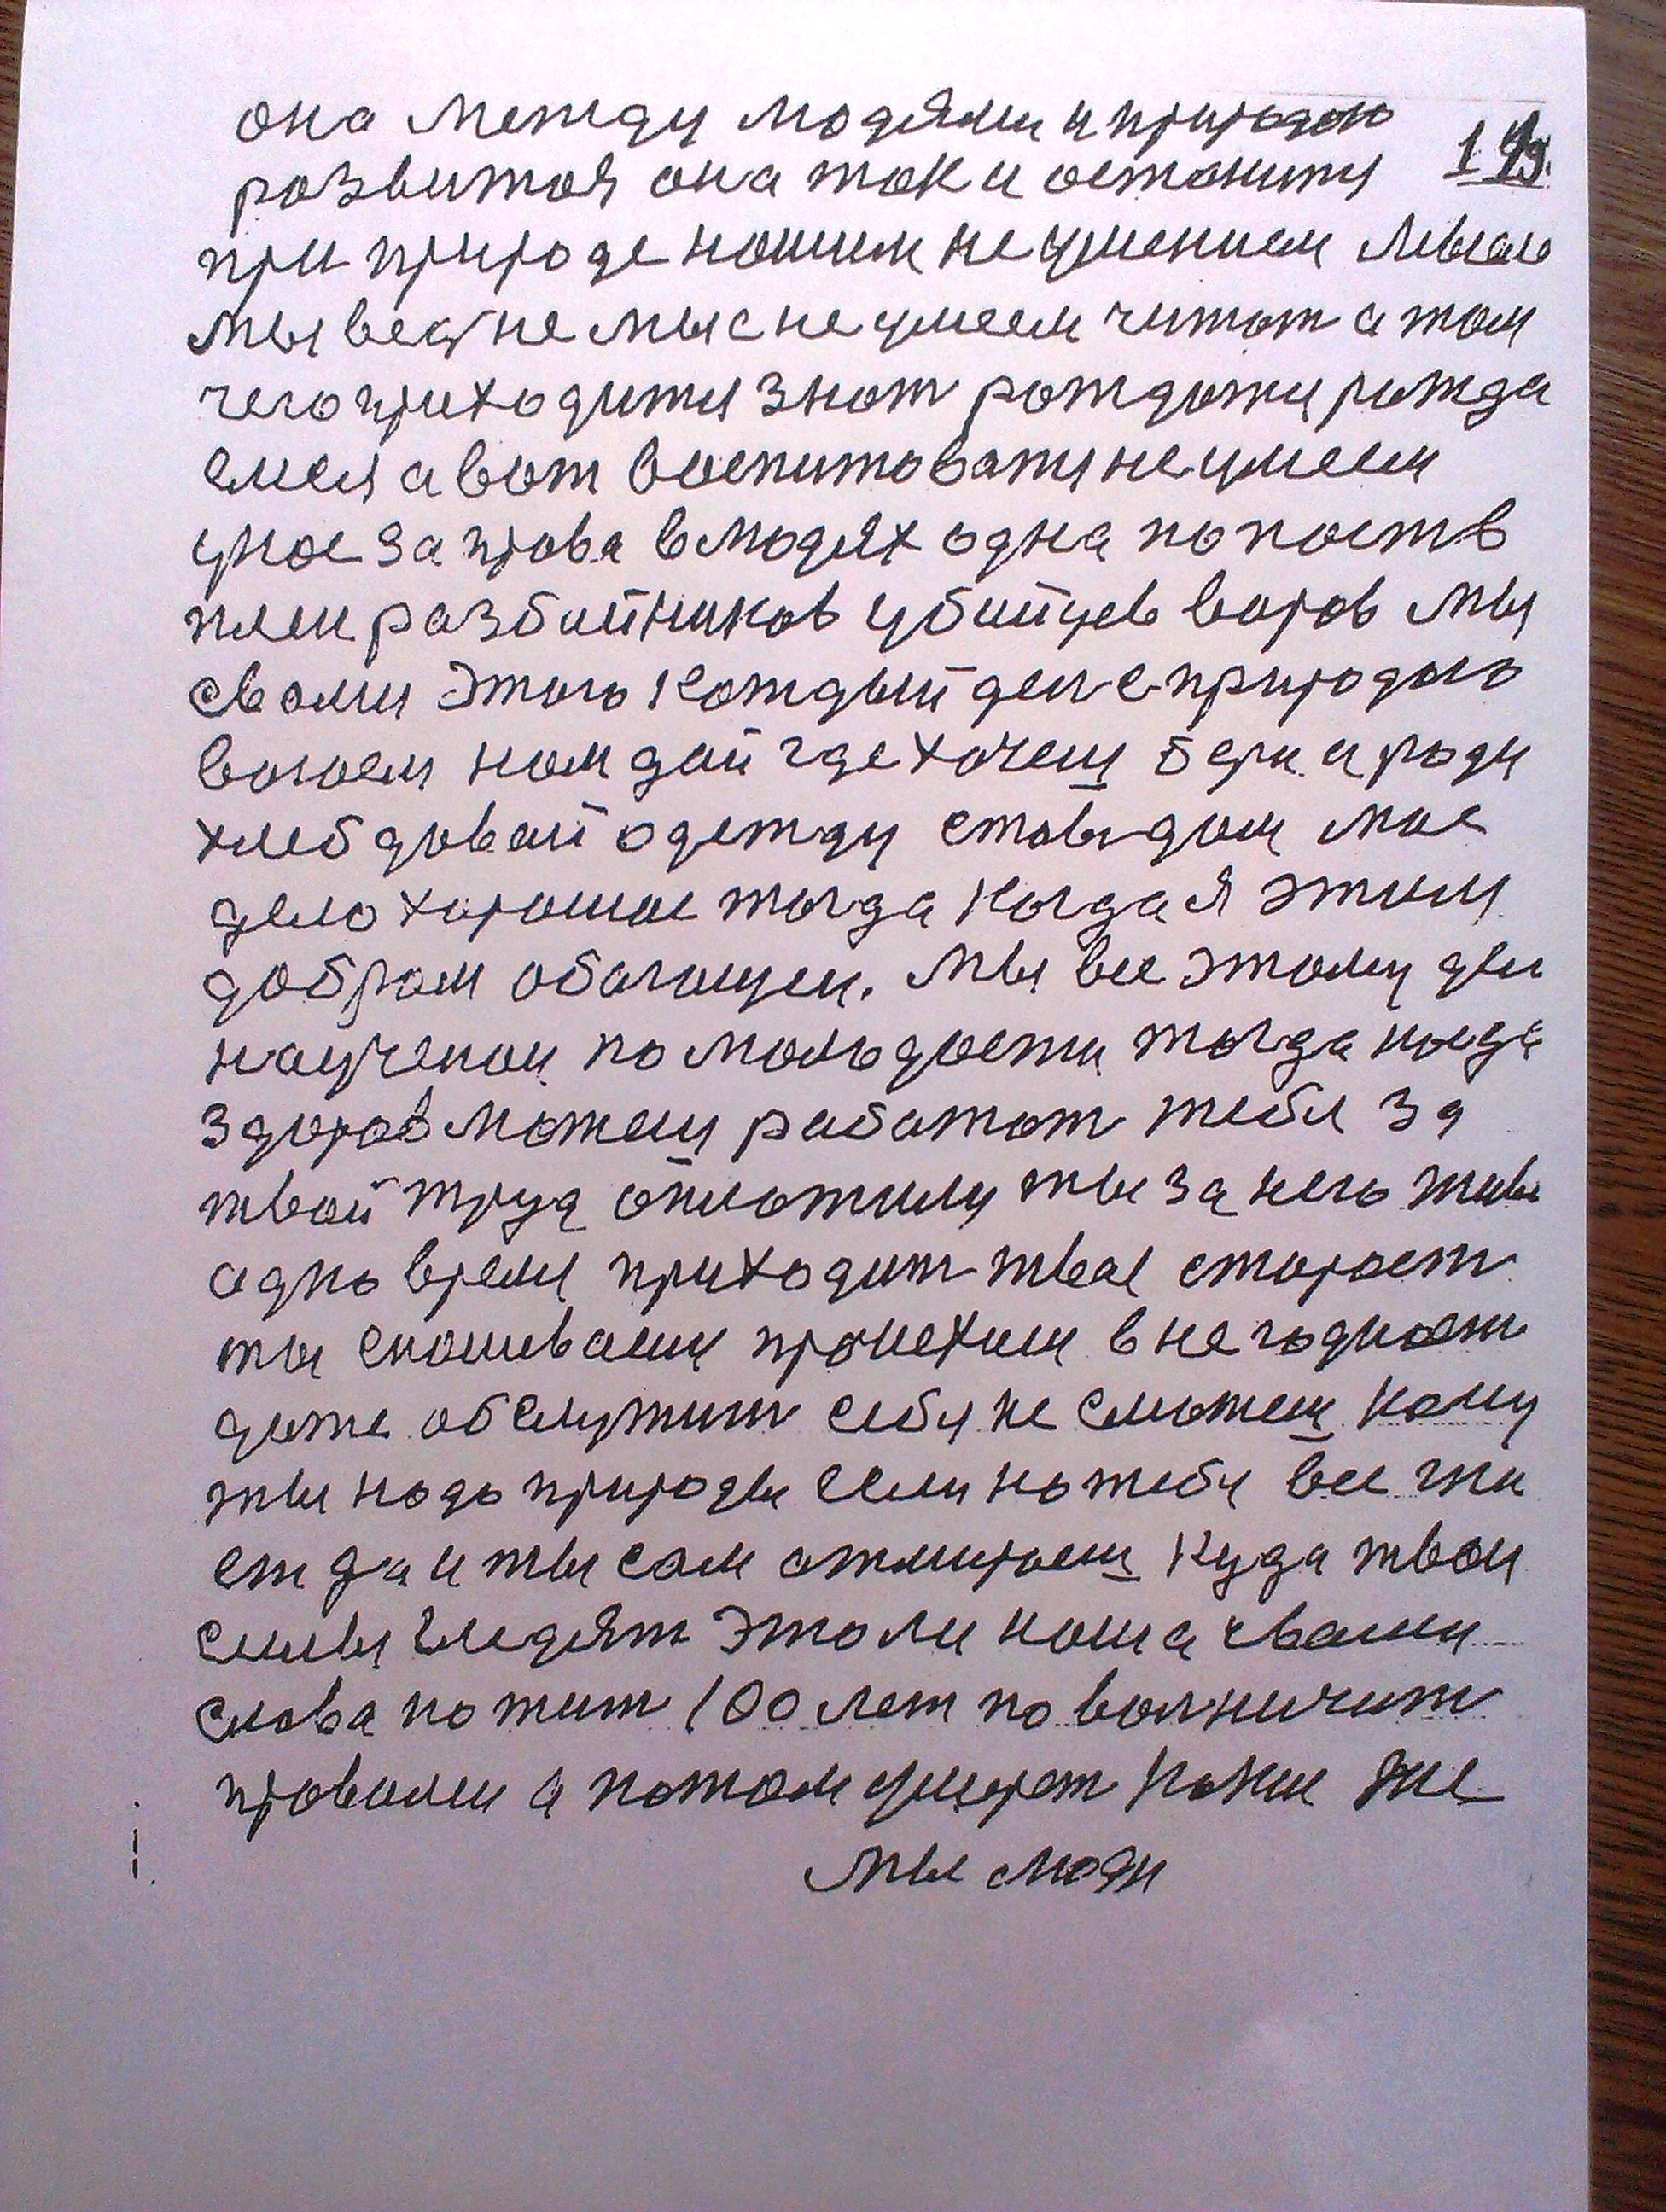 она между людями и природою
развитая она так и останитя
при природе нашим не умением
мы вед не мы с не умеем читат а том
чего приходитя знат рождатя рожда
емся а вот воспитоватя не умеем
уное за права в людях одна попоств
плем разбойников убийцев воров мы
свами этого каждый ден с природою
воюем нам дай где хочеш бери а роди
хлеб довай одежду ставь дом мое
дело хорошое тогда когда я этим
добром обагощен. мы все этому делу
научены по молодости тогда когда
здоров можеш работат тебя за
твой труд оплотили ты за него живе
адно время приходит твая старост
ты сношиваеш приходиш в негодност
даже обслужит себя не сможеш кому
ты надо природы если на тебя все жи
ет да и ты сам отмираеш куда твои
силы глядят это ли наша свами
слова пожит 100 лет поволничит
правами а потом умерет какие же
мы люди